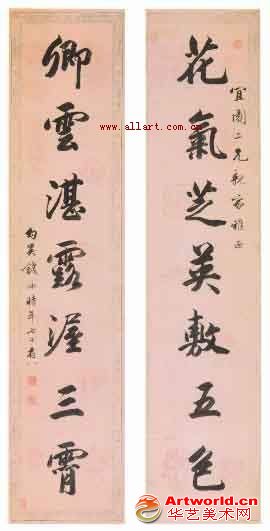 宜園二兄親家雅正
花氣芝英敷五色
卿雲湛露渥三霄
句吳錢泳時年七十有八
www.allart.com.cn
Artworld.cn
华艺美术网